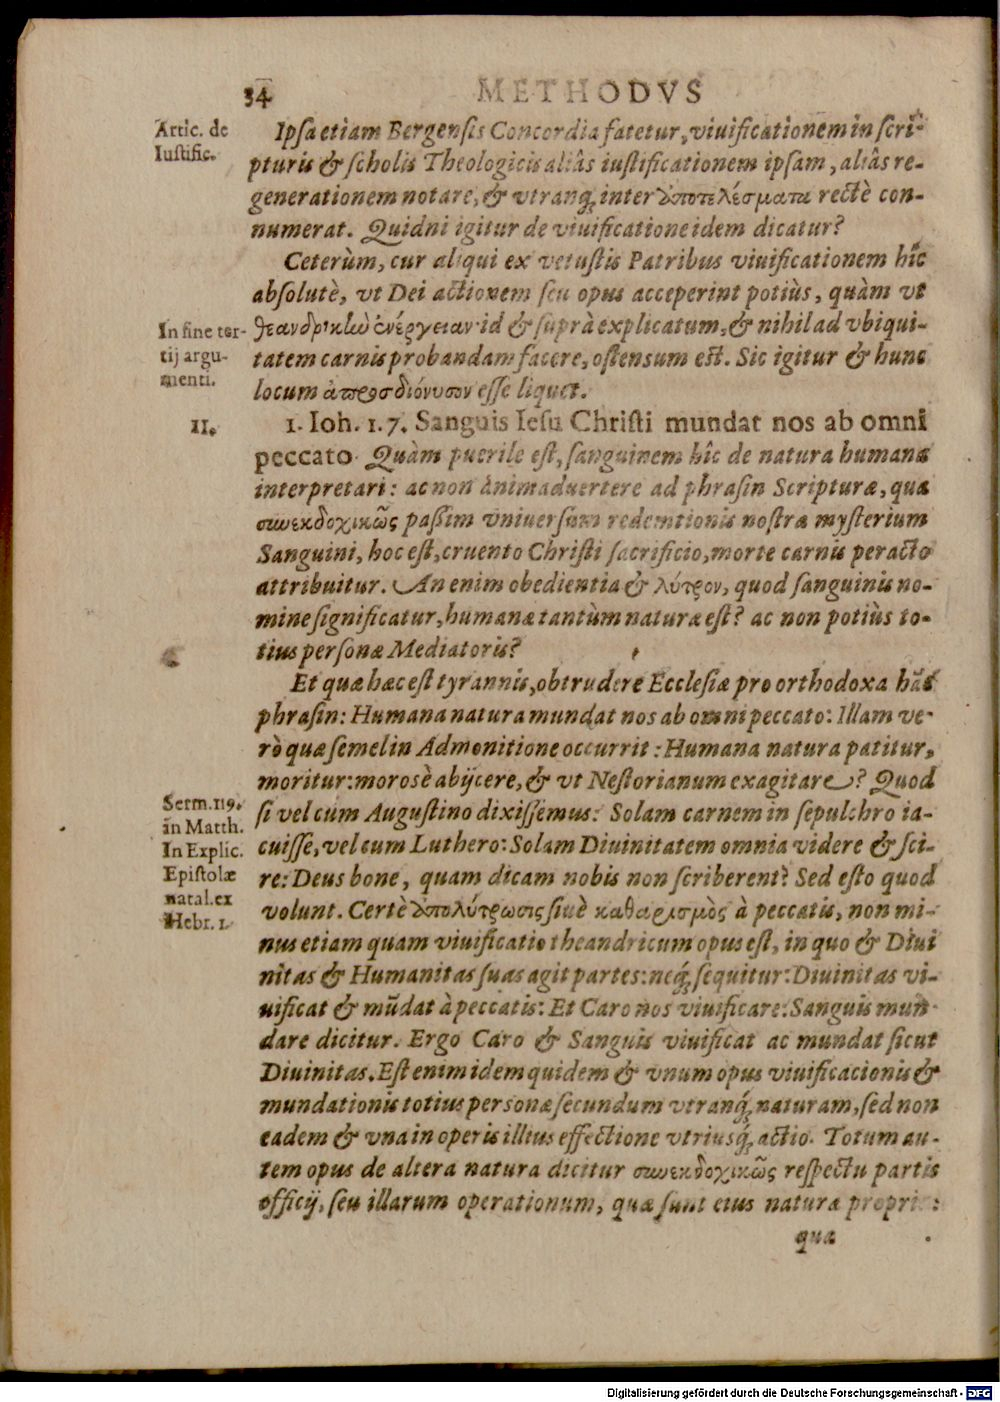 34 METHODVS
Artic. de
Iustific.
Ipsa etiam Bergensis Concordia fatetur, viuificationem in scri-
pturis & scholis Theologicis aliâs iustificationem ipsam, aliâs re-
generationem notare, & vtranq́; inter ἀποτελέσματα rectè con-
numerat. Quidni igitur de viuificatione idem dicatur?
Ceterùm, cur aliqui ex vetustis Patribus viuificationem hîc
absolutè, vt Dei actionem seu opus acceperint potiùs, quàm vt
In fine ter-
tij argu-
menti.
θεανδρικὴν ἐνέργειαν id & suprà explicatum, & nihil ad vbiqui-
tatem carnis probandam facere, ostensum est. Sic igitur & hunc
locum ἀπροσδιόνυσον esse liquet.
II.
1. Ioh. 1. 7. Sanguis Iesu Christi mundat nos ab omni
peccato. Quàm puerile est, sanguinem hîc de natura humana
interpretari: ac non animaduertere ad phrasin Scripturæ, qua
συνεκδοχικῶς passim vniuersum redemtionis nostræ mysterium
Sanguini, hoc est, cruento Christi sacrificio, morte carnis peracto
attribuitur. An enim obedientia & λύτρον, quod sanguinis no-
mine significatur, humanæ tantùm naturæ est? ac non potiùs to-
tius personæ Mediatoris?
Et quæ hæc est tyrannis, obtrudere Ecclesiæ pro orthodoxa hãc
phrasin: Humana natura mundat nos ab omni peccato: Illam ve-
rò quæ semel in Admonitione occurrit: Humana natura patitur,
moritur: morosè abijcere, & vt Nestorianum exagitare? Quod
Serm. 119.
in Matth.
In Explic.
Epistolæ
natal. ex
Hebr. 1.
si vel cum Augustino dixissemus: Solam carnem in sepulchro ia-
cuisse, vel cum Luthero: Solam Diuinitatem omnia videre & sci-
re: Deus bone, quam dicam nobis non scriberent? Sed esto quod
volunt. Certè ἀπολύτρωσις siuè καθαρισμὸς à peccatis, non mi-
nus etiam quam viuificatio theandricum opus est, in quo & Diui
nitas & Humanitas suas agit partes: neq́; sequitur: Diuinitas vi-
uificat & mũdat à peccatis: Et Caro nos viuificare: Sanguis mun-
dare dicitur. Ergo Caro & Sanguis viuificat ac mundat sicut
Diuinitas. Est enim idem quidem & vnum opus viuificacionis &
mundationis totius personæ secundum vtranq́; naturam, sed non
eadem & vna in operis illius effectione vtriusq́; actio. Totum au-
tem opus de altera natura dicitur συνεκδοχικῶς respectu partis
officij, seu illarum operationum, quæ sunt eius naturæ propriæ:
qua
Digitalisierung gefördert durch die Deutsche Forschungsgemeinschaft - DFG